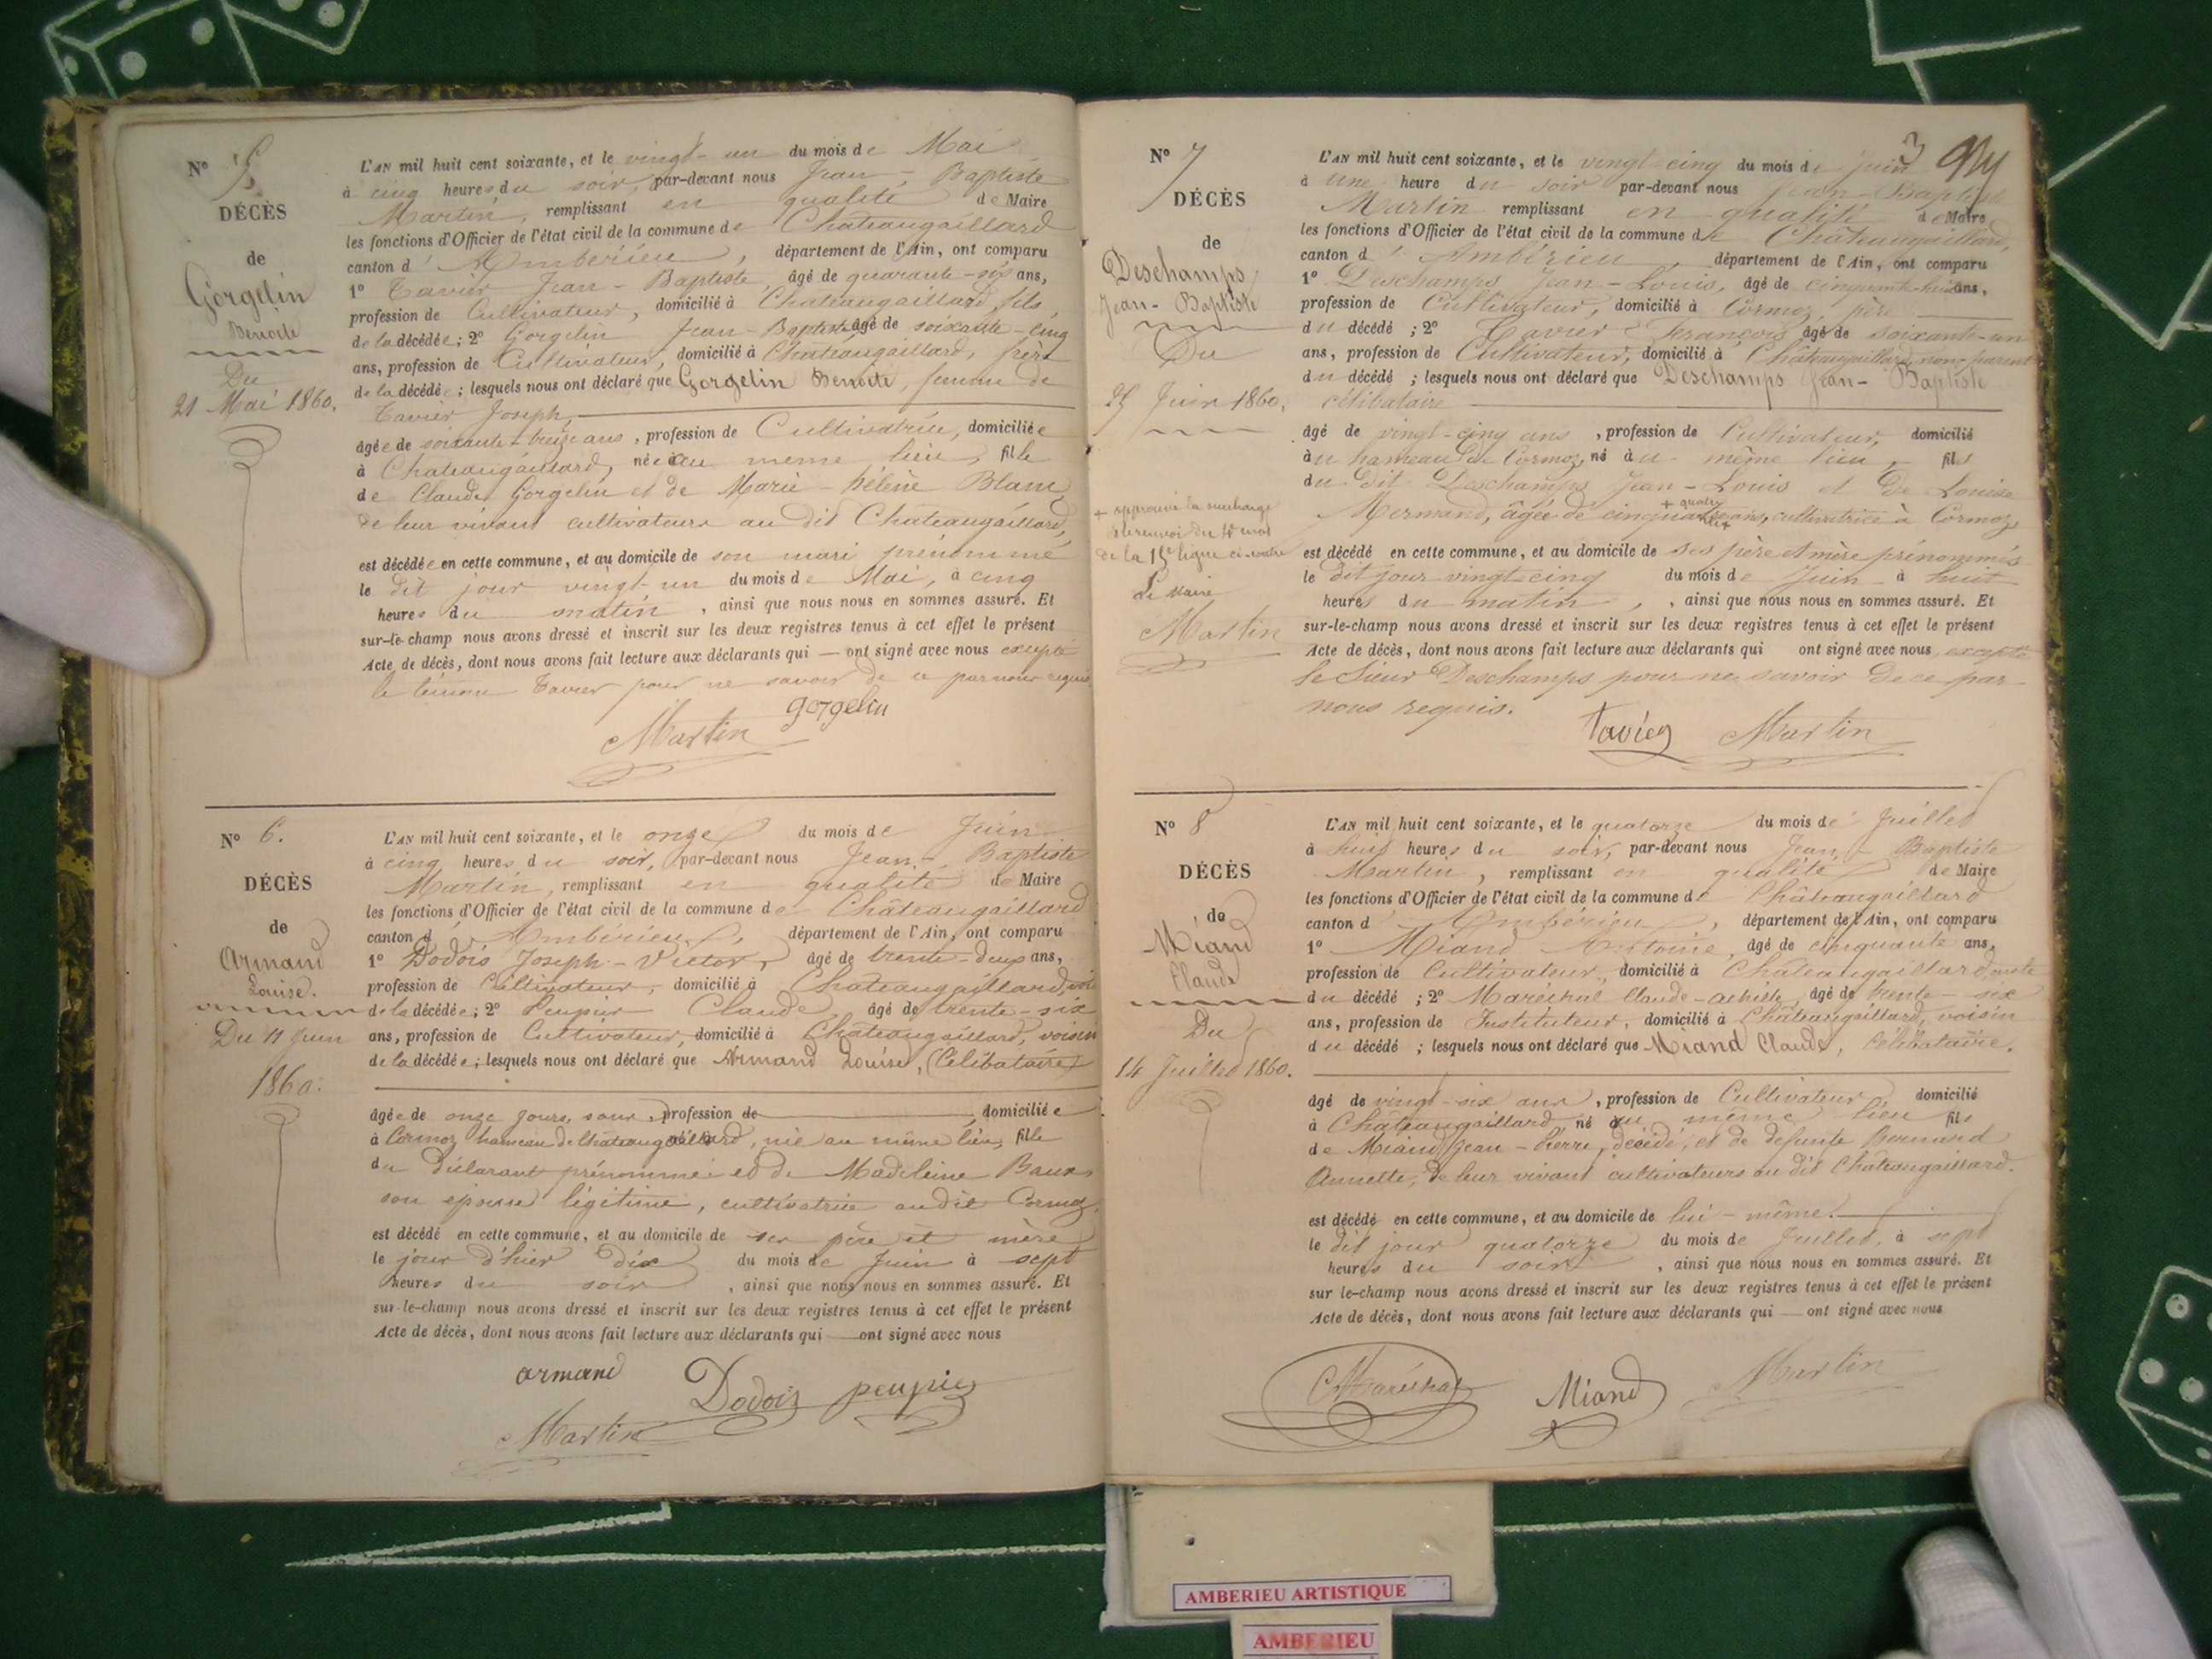 Nº 5.
DÉCÈS
de
Gorgelin
Benoite
Du
21 Mai 1860.
L'AN mil huit cent soixante, et le vingt-un du mois de Mai
à cinq heures du soir, par-devant nous Jean-Baptiste
Martin, remplissant en qualité de Maire
les fonctions d'Officier de l'état civil de la commune de Châteaugaillard
canton d'Ambérieu, département de l'Ain, ont comparu
1º Tavier Jean-Baptiste, âgé de quarante-six ans,
profession de Cultivateur, domicilié à Châteaugaillard, fils
de la décédée; 2º Gorgelin Jean-Baptiste, âgé de soixante-cinq
ans, profession de Cultivateur, domicilié à Châteaugaillard, frère
de la décédée; lesquels nous ont déclaré que Gorgelin Benoite, femme de
Tavier Joseph,
âgée de soixante-treize ans, profession de Cultivatrice, domiciliée
à Châteaugaillard, née au même lieu, fille
de Claude Gorgelin et de Marie-hélène Blanc
de leur vivant cultivateurs au dit Châteaugaillard,
est décédée en cette commune, et au domicile de son mari prénommé
le dit jour vingt-un du mois de Mai, à cinq
heures du matin, ainsi que nous nous en sommes assuré. Et
sur-le-champ nous avons dressé et inscrit sur les deux registres tenus à cet effet le présent
Acte de décès, dont nous avons fait lecture aux déclarants qui — ont signé avec nous excepté
le témoin Tavier pour ne savoir de ce par nous requis
gorgelin
Martin
Nº 6.
DÉCÈS
de
Armand
Louise.
Du 11 Juin
1860.
L'AN mil huit cent soixante, et le onze du mois de Juin
à cinq heures du soir, par-devant nous Jean-Baptiste
Martin, remplissant en qualité de Maire
les fonctions d'Officier de l'état civil de la commune de Châteaugaillard
canton d'Ambérieu, département de l'Ain, ont comparu
1º Dodois Joseph-Victor, âgé de trente-deux ans,
profession de Cultivateur, domicilié à Châteaugaillard,
de la décédée; 2º Peupier Claude âgé de trente-six
ans, profession de Cultivateur, domicilié à Châteaugaillard, voisin
de la décédée; lesquels nous ont déclaré que Armand Louise, (Célibataire)
âgée de onze jours, sans profession de domiciliée
à Cormoz hameau de Châteaugaillard, née au même lieu, fille
du déclarant prénommé et de Madeleine Baux
son épouse légitime, cultivatrice audit Cormoz,
est décédé en cette commune, et au domicile de ses père et mère
le jour d'hier dix du mois de Juin à sept
heures du soir, ainsi que nous nous en sommes assuré. Et
sur-le-champ nous avons dressé et inscrit sur les deux registres tenus à cet effet le présent
Acte de décès, dont nous avons fait lecture aux déclarants qui — ont signé avec nous
armand
Dodois peupier
Martin
3
Nº 7
DÉCÈS
de
Deschamps
Jean-Baptiste
Du
25 Juin 1860.
+ approuvé la surcharge
et le renvoi du 4e mot
de la 15e ligne ci-contre
Le Maire
Martin
L'AN mil huit cent soixante, et le vingt-cinq du mois de juin
à une heure du soir par-devant nous Jean-Baptiste
Martin remplissant en qualité de Maire
les fonctions d'Officier de l'état civil de la commune de Châteaugaillard,
canton d'Ambérieu, département de l'Ain, ont comparu
1º Deschamps Jean-Louis, âgé de cinquante-huit ans,
profession de Cultivateur, domicilié à Cormoz, père
du décédé; 2º Tavier François âgé de soixante-un
ans, profession de Cultivateur, domicilié à Châteaugaillard, non parent
du décédé; lesquels nous ont déclaré que Deschamps Jean-Baptiste
célibataire
âgé de vingt-cinq ans, profession de Cultivateur, domicilié
au hameau de Cormoz, né au même lieu, fils
du dit Deschamps Jean-Louis et de Louise
+ quatre
Mermand, âgée de cinquante ans, cultivatrice à Cormoz,
est décédé en cette commune, et au domicile de ses père et mère prénommés
le dit jour vingt-cinq du mois de Juin à huit
heures du matin, ainsi que nous nous en sommes assuré. Et
sur-le-champ nous avons dressé et inscrit sur les deux registres tenus à cet effet le présent
Acte de décès, dont nous avons fait lecture aux déclarants qui ont signé avec nous excepté
le Sieur Deschamps pour ne savoir de ce par
nous requis.
Tavier Martin
Nº 8
DÉCÈS
de
Miand
Claude
Du
14 Juillet 1860.
L'AN mil huit cent soixante, et le quatorze du mois de Juillet
à huit heures du soir, par-devant nous Jean-Baptiste
Martin, remplissant en qualité de Maire
les fonctions d'Officier de l'état civil de la commune de Châteaugaillard
canton d'Ambérieu, département de l'Ain, ont comparu
1º Miand Antoine, âgé de cinquante ans,
profession de Cultivateur, domicilié à Châteaugaillard,
du décédé; 2º Maréchal Claude-achille, âgé de trente-six
ans, profession de Instituteur, domicilié à Châteaugaillard, voisin
du décédé; lesquels nous ont déclaré que Miand Claude, Célibataire.
âgé de vingt-six ans, profession de Cultivateur, domicilié
à Châteaugaillard né au même lieu fils
de Miand Jean-Pierre, décédé, et de défunte Bernard
Annette, de leur vivant cultivateurs au dit Châteaugaillard.
est décédé en cette commune, et au domicile de lui-même.
le dit jour quatorze du mois de Juillet, à sept
heures du soir, ainsi que nous nous en sommes assuré. Et
sur-le-champ nous avons dressé et inscrit sur les deux registres tenus à cet effet le présent
Acte de décès, dont nous avons fait lecture aux déclarants qui — ont signé avec nous
Maréchal Miand Martin
AMBERIEU ARTISTIQUE
AMBERIEU